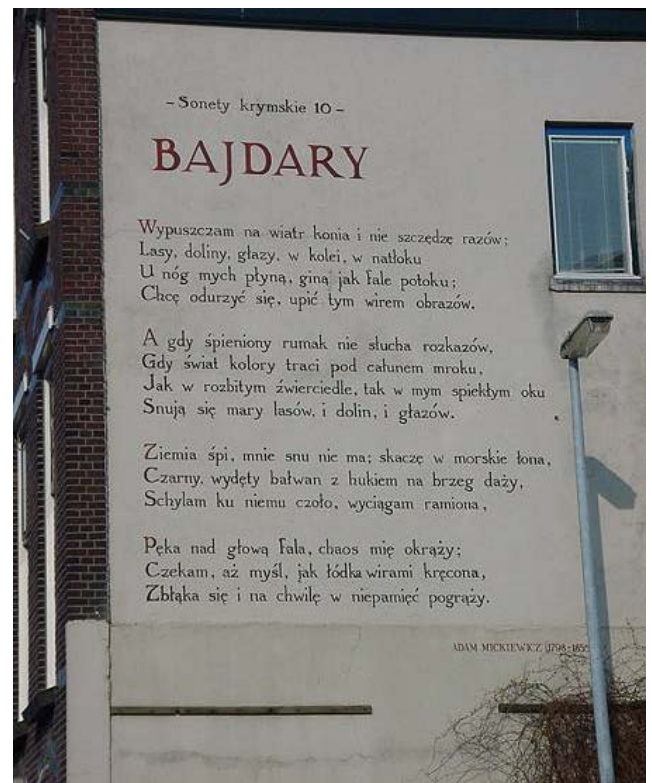 – Sonety krymskie 10 –
BAJDARY
Wypuszczam na wiatr konia i nie szczędzę razów;
Lasy, doliny, głazy, w kolei, w natłoku
U nóg mych płyną, giną jak fale potoku;
Chcę odurzyć się, upić tym wirem obrazów.
A gdy śpieniony rumak nie słucha rozkazów,
Gdy świat kolory traci pod całunem mroku,
Jak w rozbitym źwierciedle, tak w mym spiekłym oku
Snują się mary lasów, i dolin, i głazów.
Ziemia śpi, mnie snu nie ma; skaczę w morskie łona,
Czarny, wydęty bałwan z hukiem na brzeg daży,
Schylam ku niemu czoło, wyciągam ramiona,
Pęka nad głową fala, chaos mię okrąży;
Czekam, aż myśl, jak łódka wirami kręcona,
Zbłąka się i na chwilę w niepamięć pogrąży.
ADAM MICKIEWICZ (1798-185